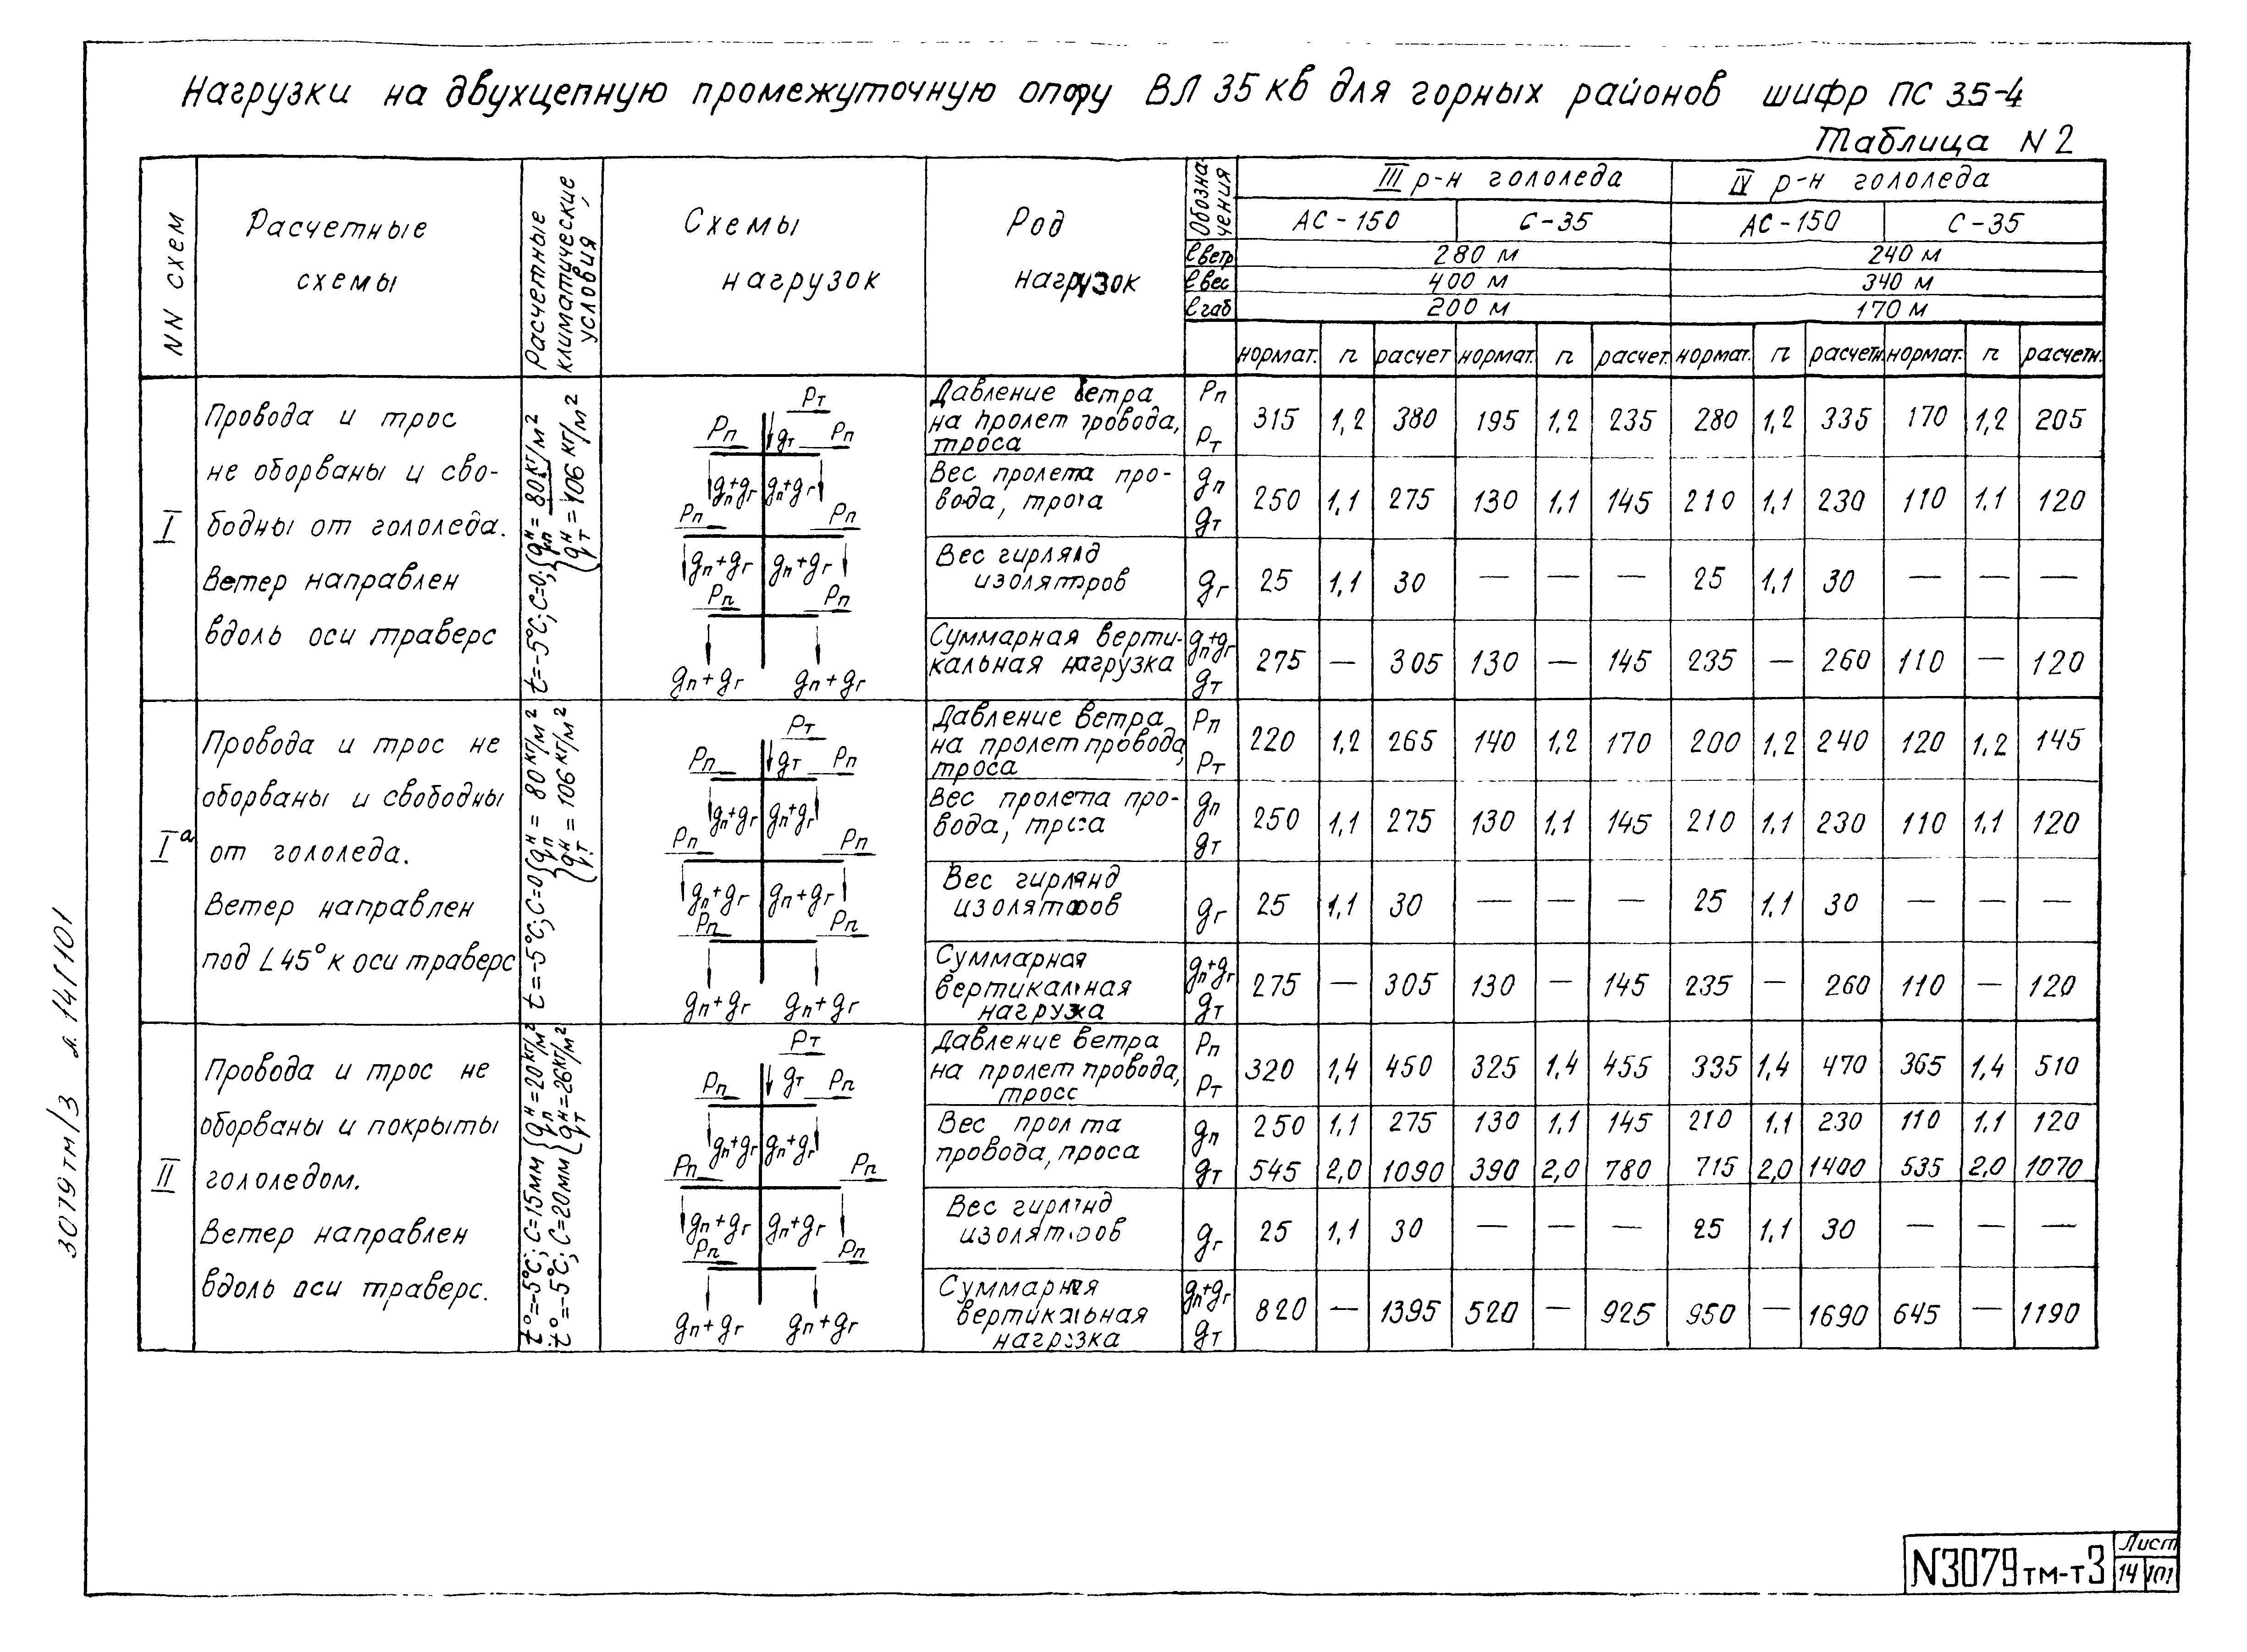 Нагрузки на двухцепную промежуточную опору ВЛ 35 кв для горных районов шифр ПС 35-4
Таблица N 2
NN схем
Расчетные схемы
Расчетные климатические условия
Схемы нагрузок
Род нагрузок
Обозначения
III р-н гололеда
IV р-н гололеда
АС-150
С-35
АС-150
С-35
ℓветр 280 м 240 м
ℓвес 400 м 340 м
ℓгаб 200 м 170 м
нормат. n расчет нормат. n расчет. нормат. n расчетн. нормат. n расчетн.
I
Провода и трос
не оборваны и сво-
бодны от гололеда.
Ветер направлен
вдоль оси траверс
t=-5°C; C=0; {qᴴп = 80 кг/м²
qᴴт = 106 кг/м²
Pт
Pп gт Pп
gп+gг gп+gг
Pп Pп
gп+gг gп+gг
Pп Pп
gп+gг gп+gг
Давление ветра
на пролет провода,
троса
Pп
Pт
315 1,2 380 195 1,2 235 280 1,2 335 170 1,2 205
Вес пролета про-
вода, троса
gп
gт
250 1,1 275 130 1,1 145 210 1,1 230 110 1,1 120
Вес гирлянд
изолятров
gг
25 1,1 30 — — — 25 1,1 30 — — —
Суммарная верти-
кальная нагрузка
gп+gг
gт
275 — 305 130 — 145 235 — 260 110 — 120
Iа
Провода и трос не
оборваны и свободны
от гололеда.
Ветер направлен
под L 45° к оси траверс
t=-5°C; C=0 {qᴴп = 80 кг/м²
qᴴт = 106 кг/м²
Pт
Pп gт Pп
gп+gг gп+gг
Pп Pп
gп+gг gп+gг
Pп Pп
gп+gг gп+gг
Давление ветра
на пролет провода,
троса
Pп
Pт
220 1,2 265 140 1,2 170 200 1,2 240 120 1,2 145
Вес пролета про-
вода, троса
gп
gт
250 1,1 275 130 1,1 145 210 1,1 230 110 1,1 120
Вес гирлянд
изолятров
gг
25 1,1 30 — — — 25 1,1 30 — — —
Суммарная
вертикальная
нагрузка
gп+gг
gт
275 — 305 130 — 145 235 — 260 110 — 120
II
Провода и трос не
оборваны и покрыты
гололедом.
Ветер направлен
вдоль оси траверс.
t°=-5°C; C=15мм {qᴴп=20 кг/м²
t°=-5°C; C=20мм {qᴴт=26 кг/м²
Pт
Pп gт Pп
gп+gг gп+gг
Pп Pп
gп+gг gп+gг
Pп Pп
gп+gг gп+gг
Давление ветра
на пролет провода,
тросс
Pп
Pт
320 1,4 450 325 1,4 455 335 1,4 470 365 1,4 510
Вес пролта
провода, проса
gп
gт
250 1,1 275 130 1,1 145 210 1,1 230 110 1,1 120
545 2,0 1090 390 2,0 780 715 2,0 1400 535 2,0 1070
Вес гирлянд
изолятров
gг
25 1,1 30 — — — 25 1,1 30 — — —
Суммарная
вертикальная
нагрузка
gп+gг
gт
820 — 1395 520 — 925 950 — 1690 645 — 1190
3079тм/3 л. 14/101
N3079тм-т3
Лист
14 101